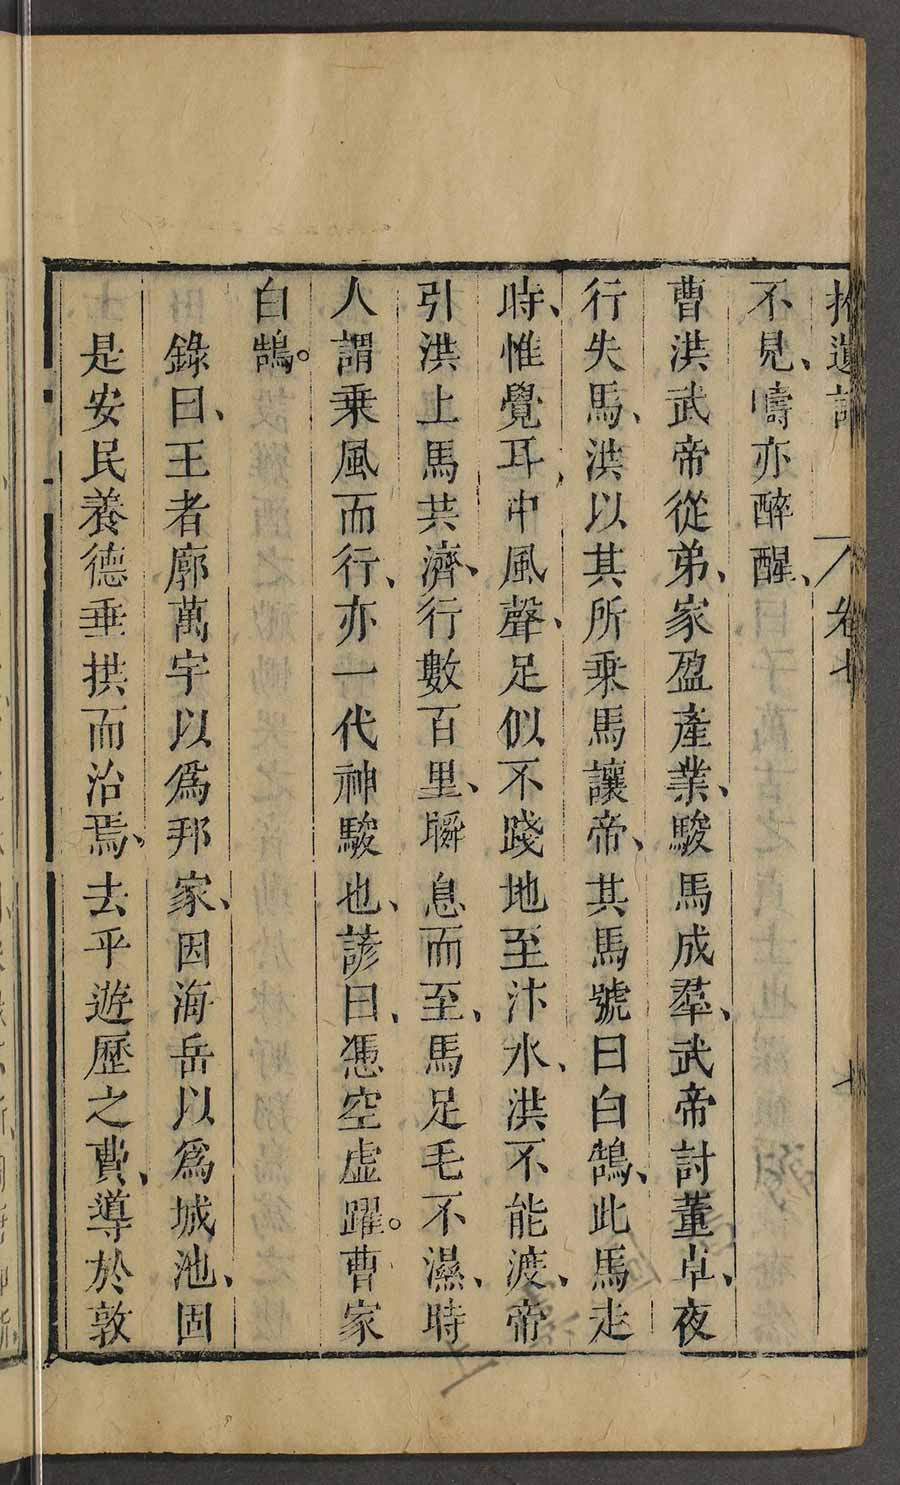 拾遺記 卷七 七
不見、嚋亦醉醒、
曹洪武帝從弟、家盈產業、駿馬成羣、武帝討董卓、夜
行失馬、洪以其所乗馬讓帝、其馬號曰白鵠、此馬走
時、惟覺耳中風聲、足似不踐地至汴水、洪不能渡、帝
引洪上馬共濟、行數百里、瞬息而至、馬足毛不濕、時
人謂乗風而行、亦一代神駿也、諺曰、憑空虛躍。曹家
白鵠。
錄曰、王者廓萬宇以爲邦家、因海岳以爲城池、固
是安民養德垂拱而治焉、去乎遊歷之費、導於敦